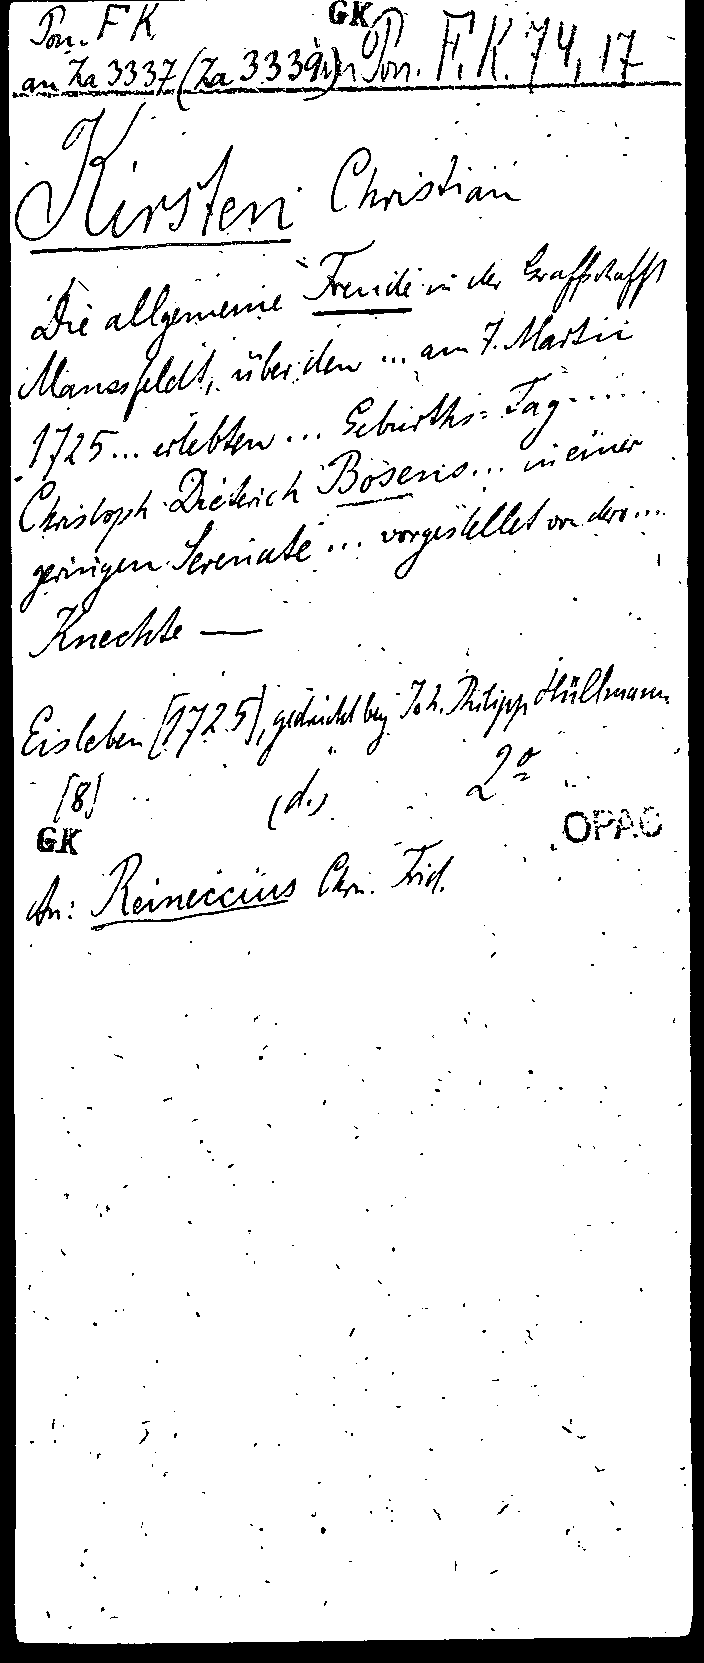 Pon. F K
GK
an Za 3337 (Za 3339 Pon. F. K. 74, 17
Kirsten Christian
Die allgemeine Freude in der Graffschafft
Manssfeldt, über den ... am 7. Martii
1725 ... erlebten ... Geburths-Tag .....
Christoph Dieterich Bosens ... in einer
geringen Serenate ... vorgestellet von dero ...
Knechte —
Eisleben [1725], gedruckt bey Joh. Philipp Hüllmann.
[8] (d.) 2°
GK
OPAC
An: Reineccius Chn. Frid.